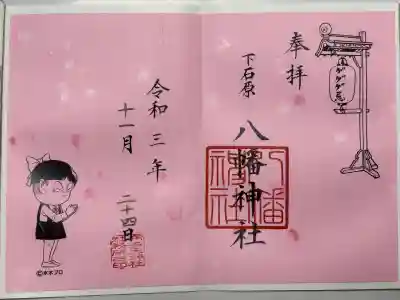 奉拝
下石原
八幡神社
八幡
神社
令和三年
十一月
二十四日
©水木プロ